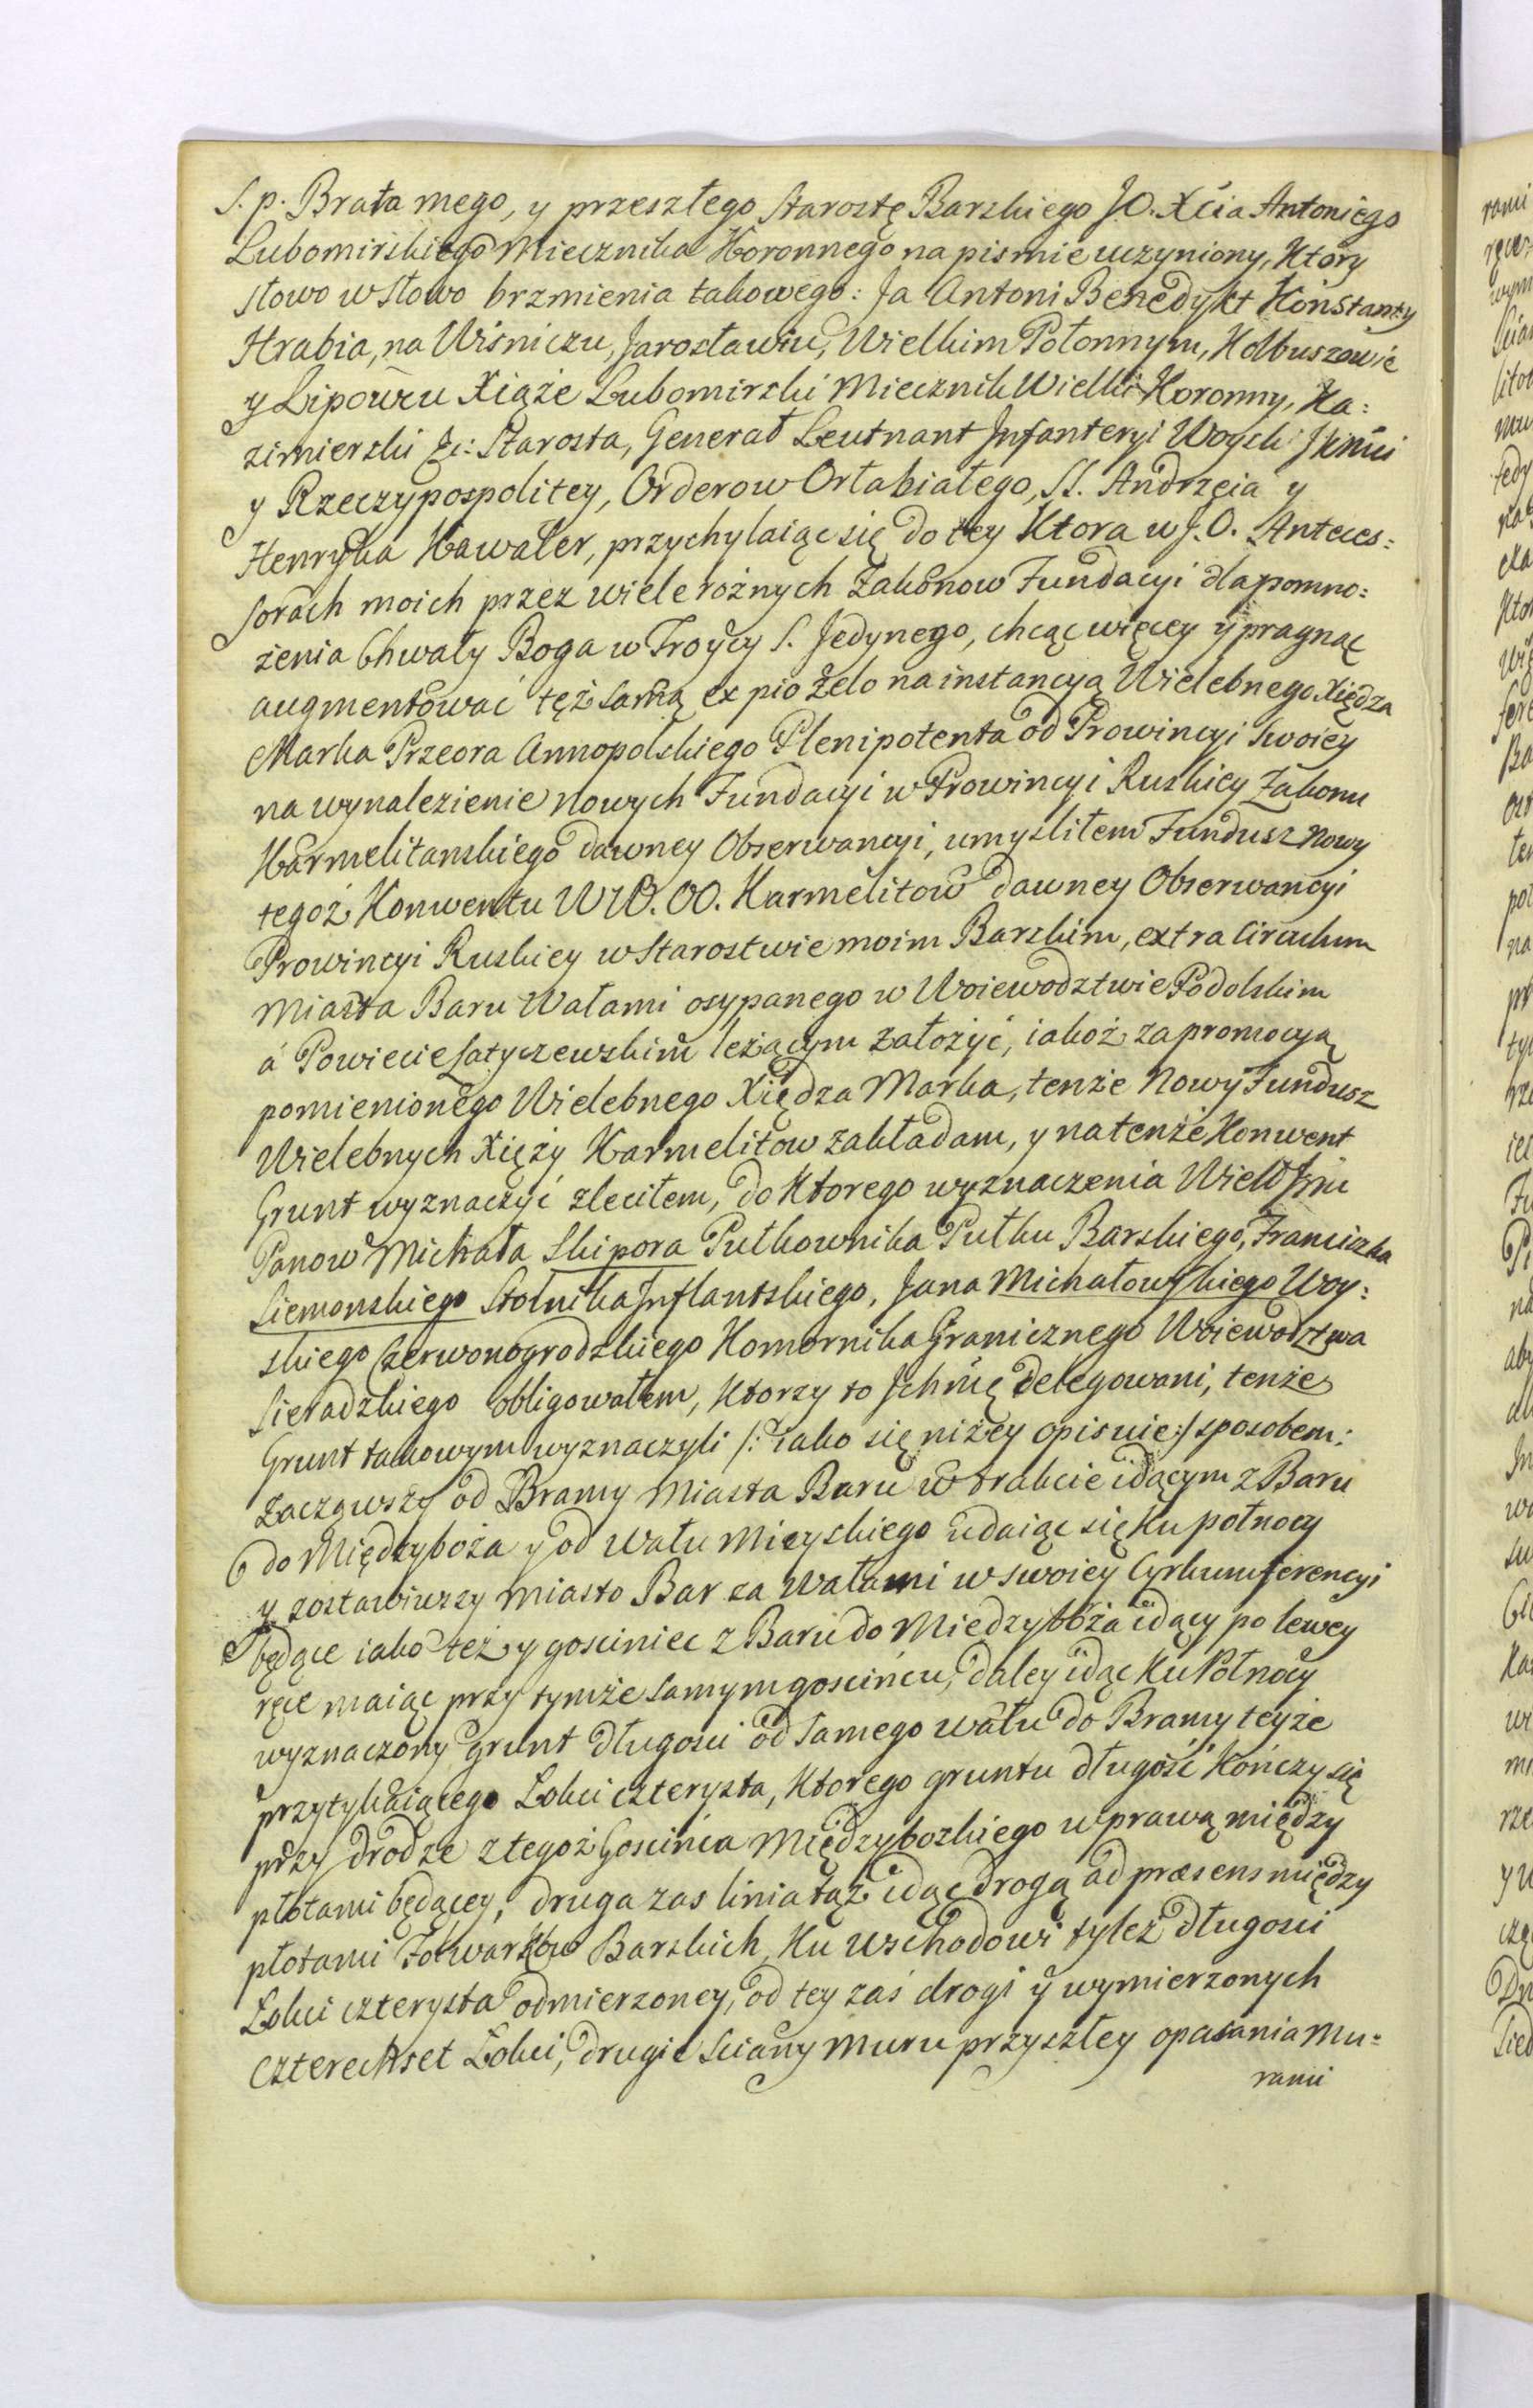 S. p. Brata mego, y przeszłego Starostę Barskiego JO. Xcia Antoniego
Lubomirskiego Miecznika Koronnego na pismie uczyniony, Ktory
słowo w słowo brzmienia takowego: Ja Antoni Benedykt Konstanty
Hrabia, na Wiśniczu, Jarosławiu, Wielkim Połonnym, Kolbuszowie
y Lipowcu Xiąże Lubomirski Miecznik Wielki Koronny, Ka:
zimierski &c: Starosta, Generał Leutnant Jnfanteryi Woysk Jkmći
y Rzeczypospolitey, Orderow Orła białego, SS. Andrzeia y
Henryka Kawaler, przychylaiąc się do tey Ktora w J.O. Anteces:
sorach moich przez wiele rożnych Zakonow Fundacyi dla pomno:
żenia Chwały Boga w Troycy S. Jedynego, chcąc więcey y pragnąc
augmentować tęż samą ex pio Zelo na instancyą Wielebnego Xiędza
Marka Przeora Annopolskiego Plenipotenta od Prowincyi Swoiey
na wynalezienie nowych Fundacyi w Prowincyi Ruskiey Zakonu
Karmelitanskiego dawney Obserwancyi, umysliłem Fundusz nowy
tegoż Konwentu WW. OO. Karmelitow dawney Obserwancyi
Prowincyi Ruskiey w Starostwie moim Barskim, extra Circulum
Miasta Baru Wałami osypanego w Woiewodztwie Podolskim
á Powiecie Latyczewskim leżącym Założyć, iakoż za promocyą
pomienionego Wielebnego Xiędza Marka, tenże Nowy Fundusz
Wielebnych Xięży Karmelitow zakładam, y na tenże Konwent
Grunt wyznaczyć zleciłem, do Ktorego wyznaczenia Wiel
Panow Michała Skipora Pułkownika Pułku Barskiego, Franciszka
Siemonskiego Stolnika Jnflantskiego, Jana Michałowskiego Woy:
skiego Czerwonogrodzkiego Komornika Granicznego Woiewodztwa
Sieradzkiego obligowałem, Ktorzy to Jchmć delegowani, tenże
Grunt takowym wyznaczyli /: iako się niżey opisuie :/ sposobem:
Zacząwszy od Bramy Miasta Baru w trakcie idącym z Baru
do Międzyboża y od Wału Mieyskiego udaiąc się Ku połnocy
y zostawiwszy Miasto Bar za Wałami w swoiey Cyrkumferencyi
będące iako też y gosciniec z Baru do Miedzyboża idący po lewey
ręce maiąc przy tymże samym goscińcu, daley idąc Ku Połnocy
wyznaczony grunt długosci od samego wału do Bramy teyże
przytykaiącego Łokci czterysta, Ktorego gruntu długość Kończy się
przy drodze z tegoż Goscińca Międzybozkiego w prawą między
płotami będącey, druga zas linia taż idąc drogą ad præsens między
płotami Folwarkow Barskich, Ku Wschodowi tyleż długosci
Łokci czterysta odmierzoney, od tey zaś drogi y wymierzonych
czterechset Łokci, drugie Sciany Muru przyszłey opasania Mu:
rami